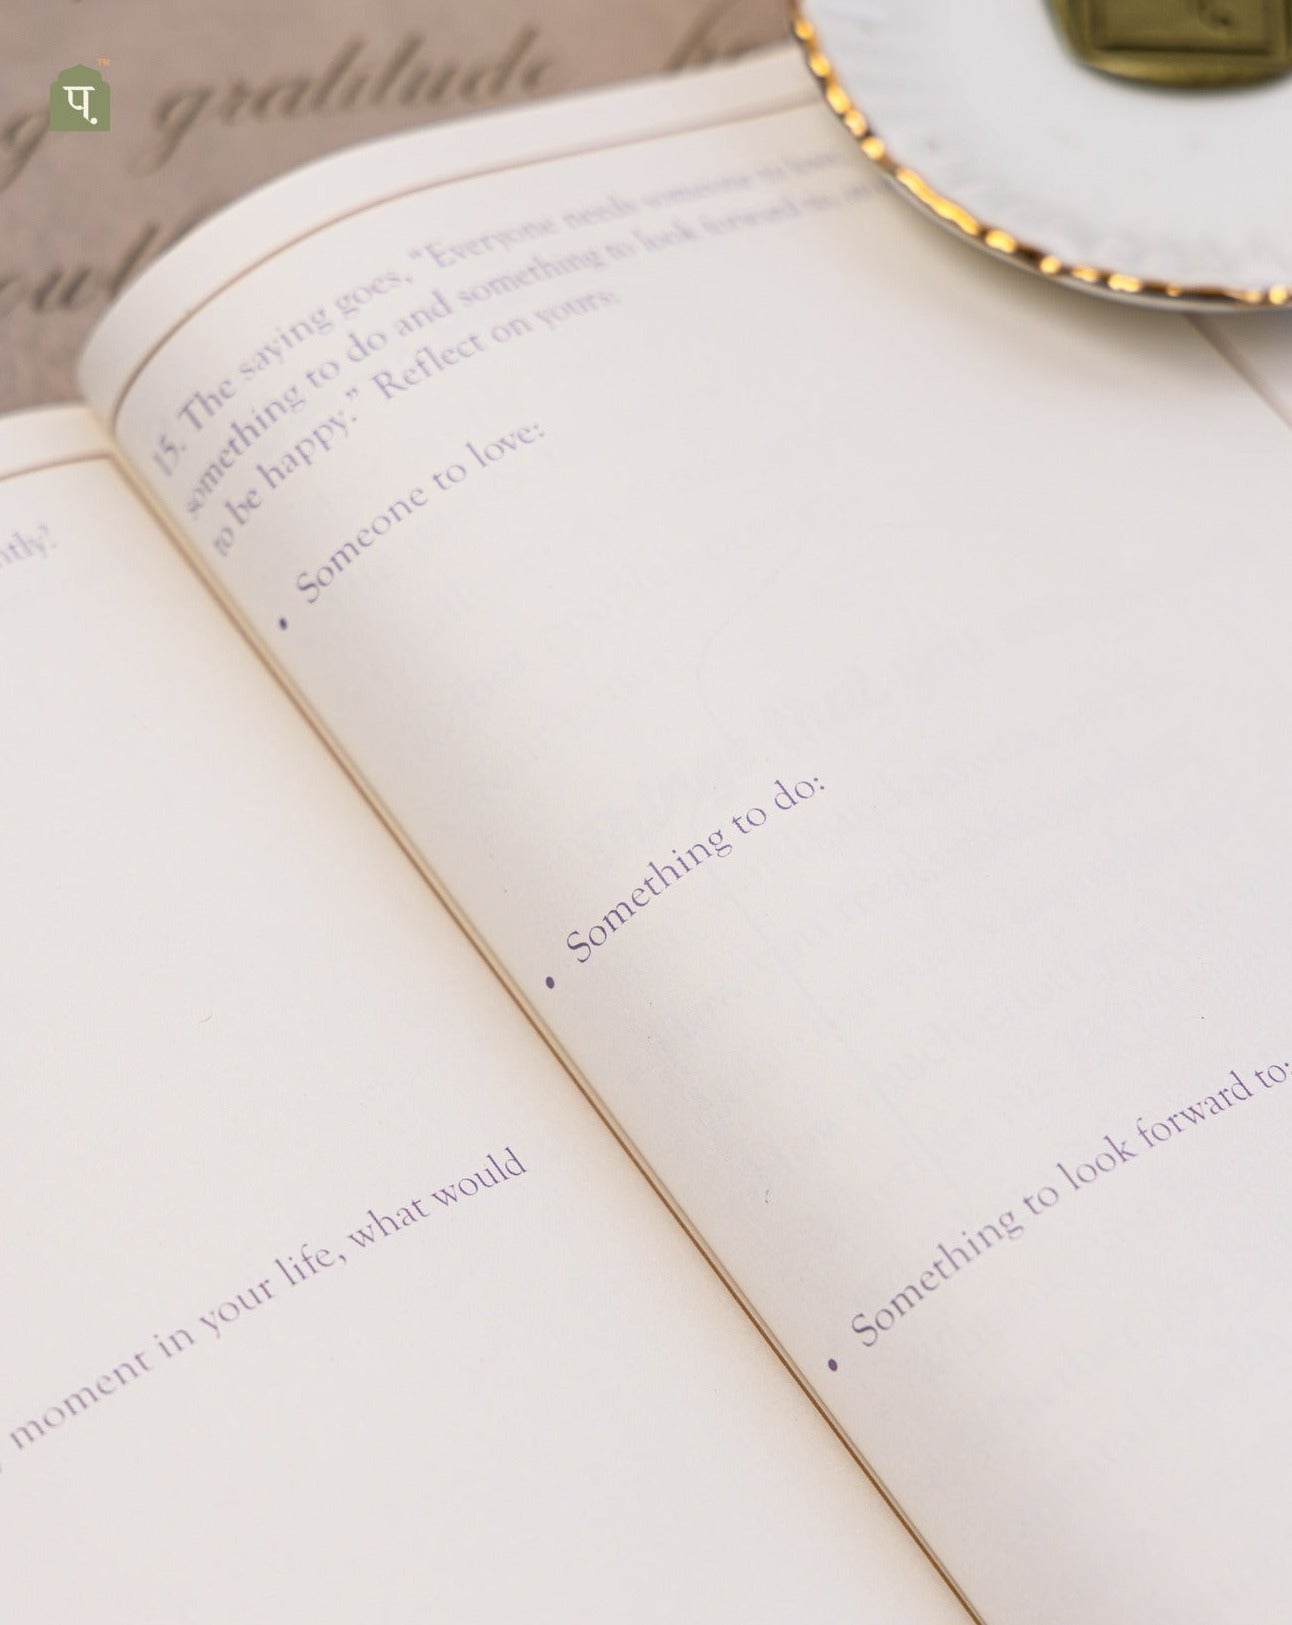 gratitude
™
प.
15. The saying goes, “Everyone needs someone to love
something to do and something to look forward to,
to be happy.” Reflect on yours:
• Someone to love:
• Something to do:
• Something to look forward to:
moment in your life, what would